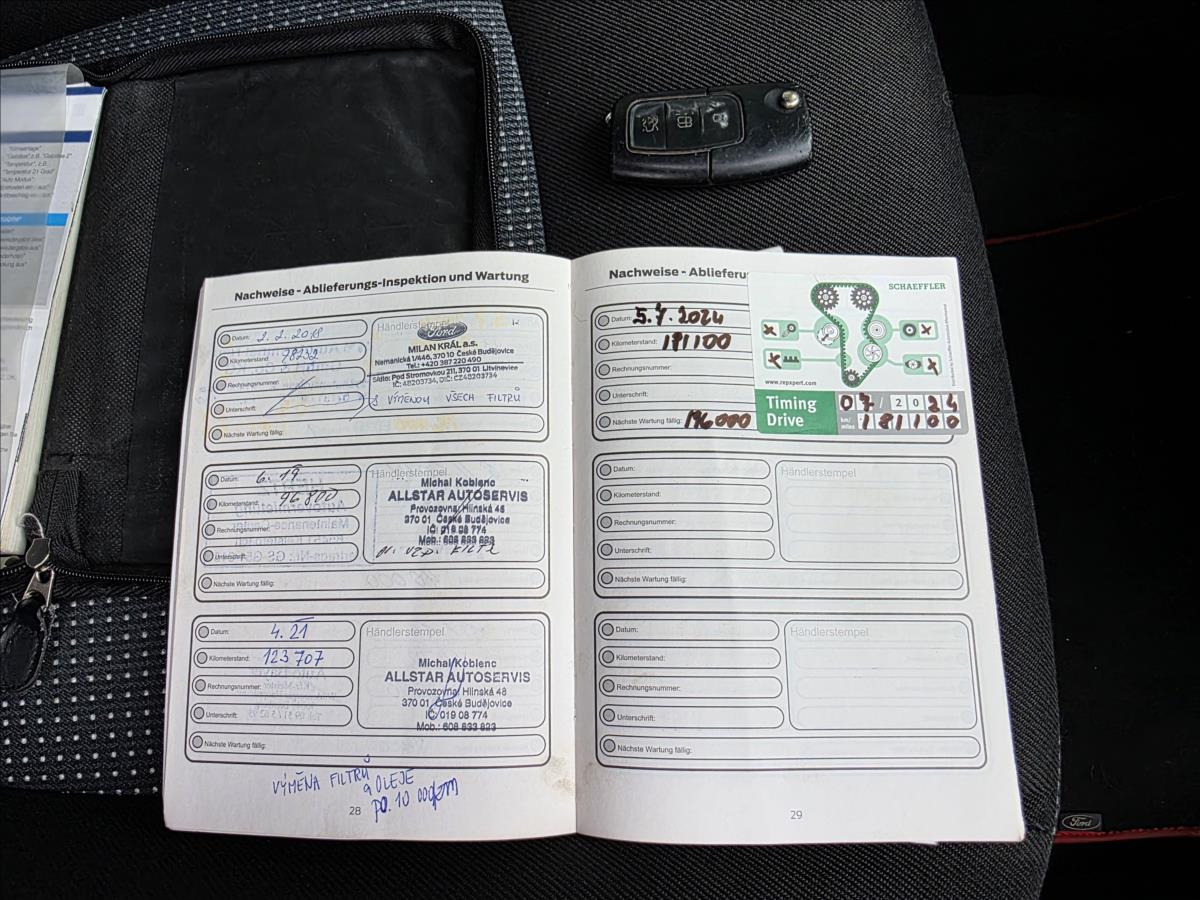 Nachweise - Ablieferungs-Inspektion und Wartung
Datum: 2. 2. 2018
Kilometerstand:
Rechnungsnummer:
Unterschrift:
Nächste Wartung fällig:
Händlerstempel
Ford
MILAN KRÁL a.s.
Nemanická 1/446, 370 10 České Budějovice
Tel.: +420 387 220 490
Sídlo: Pod Stromovkou 211, 370 01 Litvínovice
IČ: 48203734, DIČ: CZ48203734
S VÝMĚNOU VŠECH FILTRŮ
Datum: 6. 19
Kilometerstand: 96800
Rechnungsnummer:
Unterschrift:
Nächste Wartung fällig:
Händlerstempel
Michal Koblenc
ALLSTAR AUTOSERVIS
Provozovna: Hlinská 48
370 01 České Budějovice
IČ 019 08 774
Mob.: 608 833 823
Datum: 4. 21
Kilometerstand: 123 707
Rechnungsnummer:
Unterschrift:
Nächste Wartung fällig:
Händlerstempel
Michal Koblenc
ALLSTAR AUTOSERVIS
Provozovna: Hlinská 48
370 01 České Budějovice
IČ 019 08 774
Mob.: 608 833 823
VÝMĚNA FILTRŮ
a OLEJE
po. 10 000km
28
Nachweise - Ablieferu
Datum: 5.7.2024
Kilometerstand: 181100
Rechnungsnummer:
Unterschrift:
Nächste Wartung fällig: 196000
SCHAEFFLER
www.repxpert.com
Timing
Drive
07 / 2024
km/
miles
181100
Datum:
Kilometerstand:
Rechnungsnummer:
Unterschrift:
Nächste Wartung fällig:
Händlerstempel
Datum:
Kilometerstand:
Rechnungsnummer:
Unterschrift:
Nächste Wartung fällig:
Händlerstempel
29
Ford